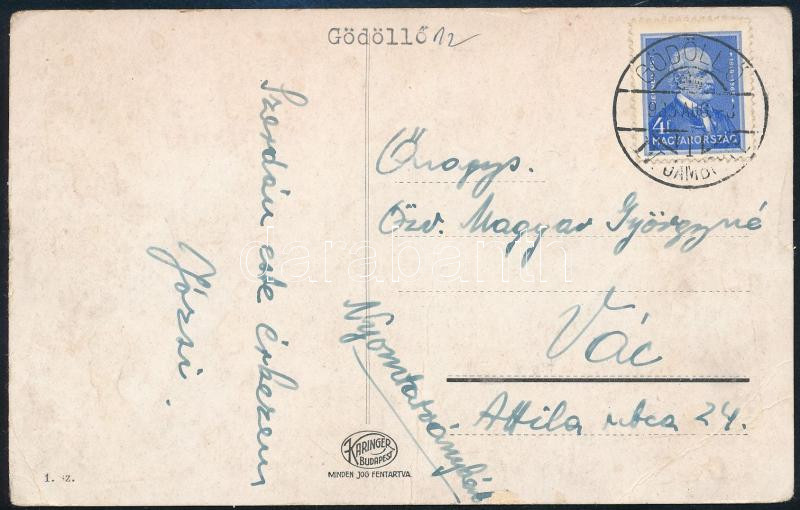 Gödöllő
Szerdán este érkezem
Józsi.
GÖDÖLLŐ
JAMBO
4f
MAGYARORSZÁG
Önagys.
Özv. Magyar Györgyné
Vác
Attila utca 24.
Nyomtatványkép
KARINGER
BUDAPEST
MINDEN JOG FENTARTVA.
1. sz.
darabanth